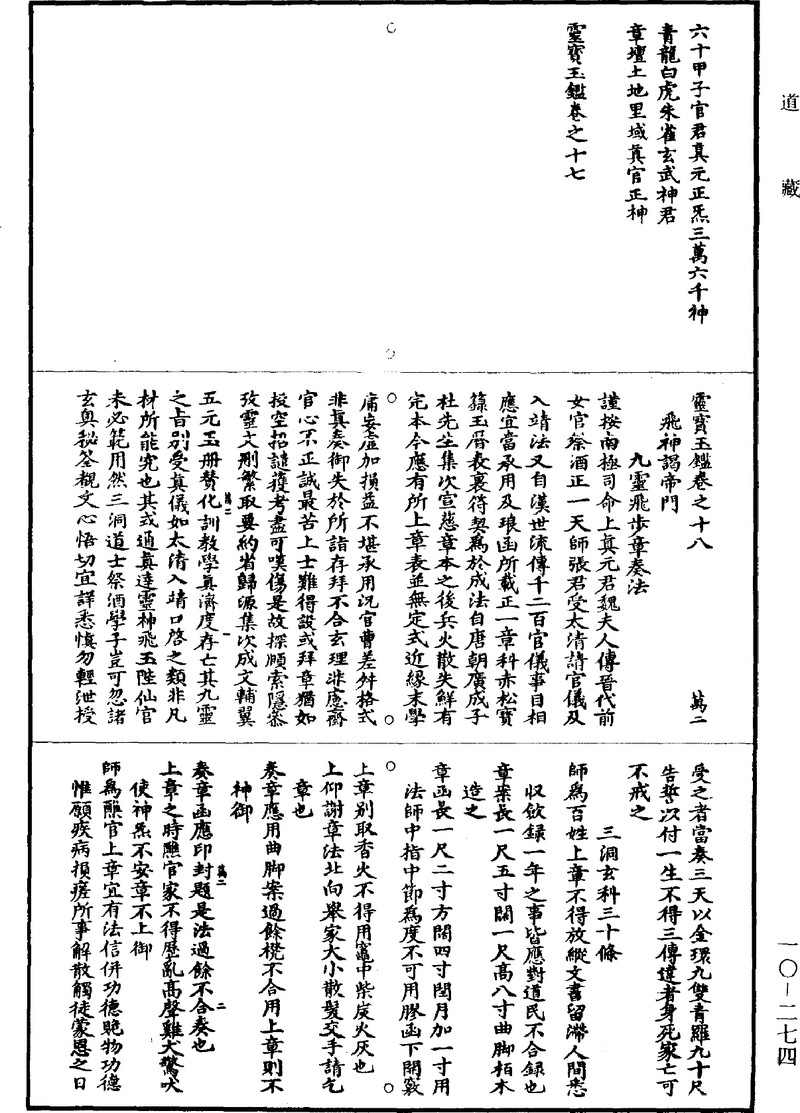 道藏
六十甲子官君真元正炁三萬六千神
青龍白虎朱雀玄武神君
章壇土地里域真官正神
靈寶玉鑑卷之十七
靈寶玉鑑卷之十八
萬二
飛神謁帝門
九靈飛步章奏法
謹按南極司命上真元君魏夫人傳晉代前
女官祭酒正一天師張君受太清請官儀及
入靖法又自漢世流傳千二百官儀事目相
應宜當承用及琅函所載正一章科赤松寶
籙玉曆表裏符契為於成法自唐朝廣成子
杜先生集次宣慈章本之後兵火散失鮮有
完本今應有所上章表並無定式近緣末學
庸妄虛加損益不堪承用況官曹差舛格式
非真奏御失於所詣存拜不合玄理非應齋
官心不正誠最苦上士難得設或拜章猶如
投空招譴獲考盡可嘆傷是故探賾索隱叅
攷靈文刪繁取要約省歸源集次成文輔翼
萬二
一
五元玉冊賛化訓教學真濟度存亡其九靈
之旨別受真儀如太清入靖口啓之類非凡
材所能究也其或通真達靈神飛玉陛仙官
未必範用然三洞道士祭酒學子豈可忽諸
玄奥秘筌覩文心悟切宜詳悉慎勿輕泄授
受之者當奏三天以金環九雙青羅九十尺
告誓次付一生不得三傳違者身死家亡可
不戒之
三洞玄科三十條
師為百姓上章不得放縱文書留滯人間悉
収斂録一年之事皆應對道民不合録也
章案長一尺五寸闊一尺高八寸曲脚栢木
造之
章函長一尺二寸方闊四寸閏月加一寸用
法師中指中節為度不可用膠函下開竅
上章別取香火不得用竈中柴炭火灰也
上仰謝章法北向舉家大小散髮交手請乞
章也
奏章應用曲脚案過餘櫈不合用上章則不
神御
萬二
二
奏章函應印封題是法過餘不合奏也
上章之時醮官家不得歷亂高聲雞犬驚吠
使神炁不安章不上御
師為醮官上章宜有法信併功德貺物功德
惟願疾病損瘥所事解散觸徒蒙恩之日
一〇－二七四